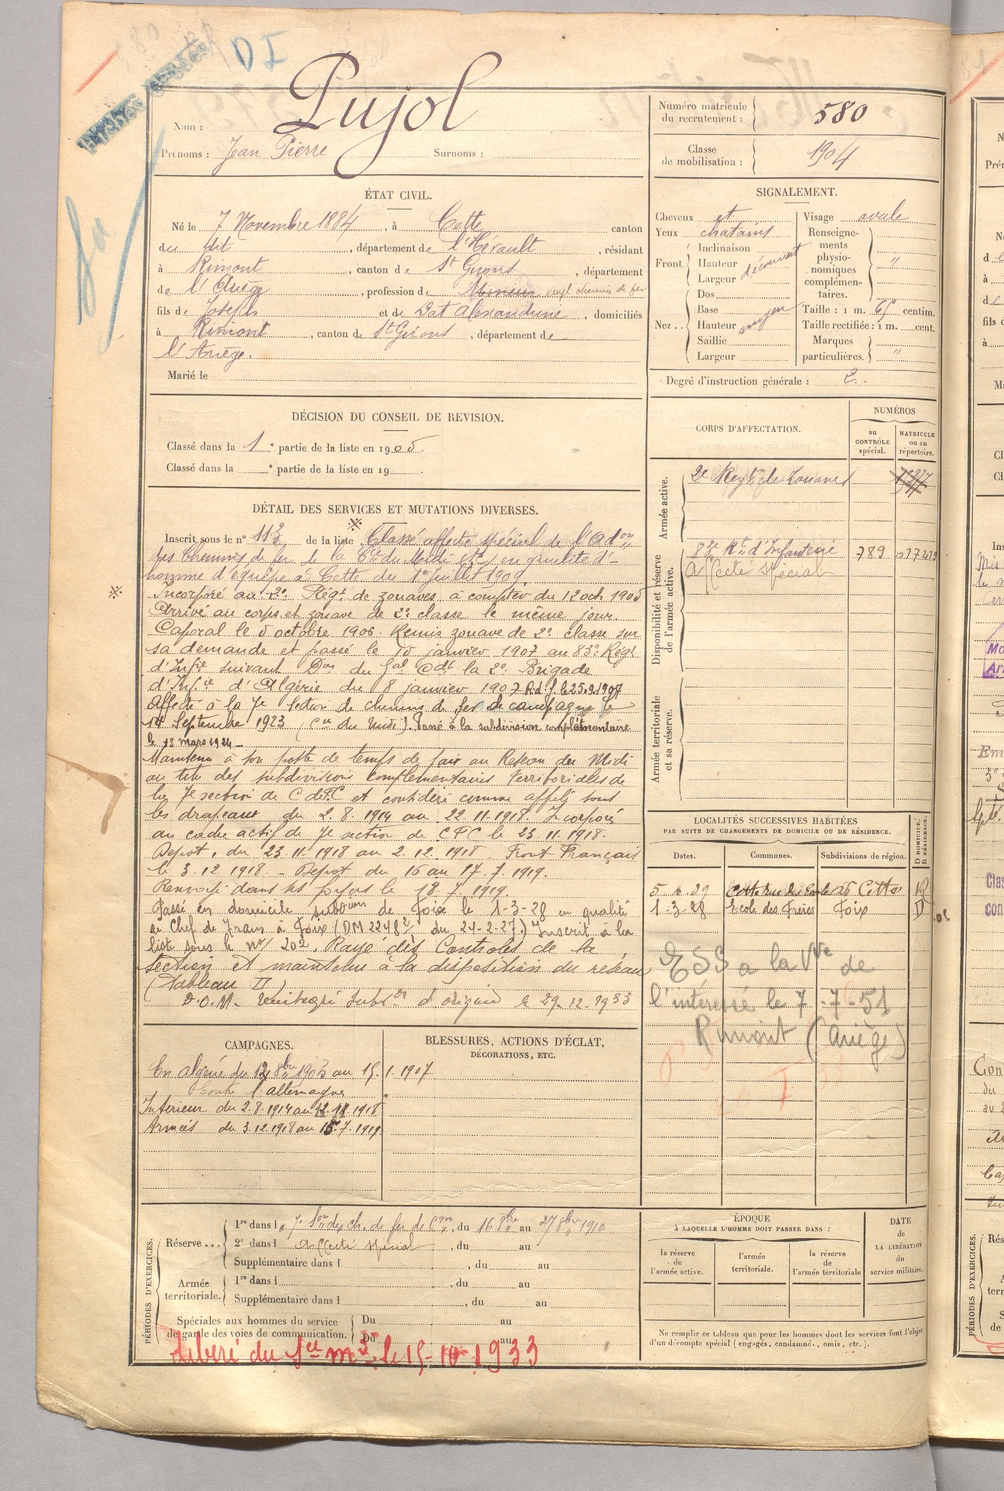 DI
Nom : Pujol
Prénoms : Jean Pierre Surnoms :
Numéro matricule du recrutement : 580
Classe de mobilisation : 1904
ÉTAT CIVIL.
Né le 7 Novembre 1884, à Cette canton
du dit, département de l'Hérault, résidant
à Rimont, canton de St Girons, département
de l'Ariège, profession de Mineur empl chemins de fer
fils de Joseph et de Dat Alexandrine, domiciliés
à Rimont, canton de St Girons, département de
l'Ariège.
Marié le
SIGNALEMENT.
Cheveux et
Yeux chatains
Front. Inclinaison
Hauteur découvert
Largeur
Nez.. Dos
Base
Hauteur moyen
Saillie
Largeur
Visage ovale
Renseignements physionomiques complémentaires. "
Taille : 1 m. 65 centim.
Taille rectifiée : 1 m. cent.
Marques particulières. "
Degré d'instruction générale : 2.
DÉCISION DU CONSEIL DE REVISION.
Classé dans la 1e partie de la liste en 1905.
Classé dans la e partie de la liste en 19 .
CORPS D'AFFECTATION.
NUMÉROS
au CONTRÔLE spécial.
MATRICULE ou au répertoire.
Armée active.
2e Régt de Zouaves
Disponibilité et réserve de l'armée active.
83e Rt d'Infanterie 789
Affecté spécial
Armée territoriale et sa réserve.
DÉTAIL DES SERVICES ET MUTATIONS DIVERSES.
Inscrit sous le n° 113 de la liste Classé affecté spécial de l'adon
des chemins de fer de la Cie du Midi en qualité d'
homme d'équipe à Cette du 1er juillet 1909.
Incorporé au 2e Régt de zouaves à compter du 12 octb 1905
Arrivé au corps et zouave de 2e classe le même jour.
Caporal le 5 octobre 1906. Remis zouave de 2e classe sur
sa demande et passé le 15 janvier 1907 au 83e Régt
d'Infie suivant Don du Gal Cdt la 2e Brigade
d'Infie d'Algérie du 8 janvier 1907. R.d.f. le 25.9.1907
Affecté à la 7e Section de chemins de fer de campagne le
Septembre 1923 (Cie du Midi). Passé à la subdivision complémentaire
le 13 mars 1924
Maintenu à son poste du temps de paix au Réseau du Midi
au titre des subdivisions complémentaires territoriales de
la 7e section de C de F C et considéré comme affecté sous
les drapeaux du 2.8.1914 au 22.11.1918. Incorporé
au cadre actif de 7e section de CFC le 23.11.1918.
Dépot, du 23.11.1918 au 2.12.1918 Front Français
le 3.12.1918 - Dépot du 16 au 17.7.1919.
Renvoyé dans ses foyers le 18.7.1919.
Passé en domicile subdon de Foix le 1-3-28 en qualité
de Chef de Train à Foix (DM 2248 du 24-2-27) Inscrit à la
list sous le n° 202. Rayé des Controles de la
section et maintenu à la disposition du réseau
(Tableau II)
D.O.M. réintégré subdon d'origine le 29.12.1933
LOCALITÉS SUCCESSIVES HABITÉES
PAR SUITE DE CHANGEMENTS DE DOMICILE OU DE RÉSIDENCE.
Dates. Communes. Subdivisions de région. D DOMICILE. R RÉSIDENCE.
Cette R
1-3-28 Ecole des Frères Foix D
ESS a la Vve de
l'intéressé le 7-7-51
Rimont (Ariège)
CAMPAGNES.
En Algérie du 12 8bre 1905 au 15.1.1907
Contre l'allemagne
Intérieur du 2.8.1914 au 1918
Armées du 3.12.1918 au 15.7.1919
BLESSURES, ACTIONS D'ÉCLAT,
DÉCORATIONS, ETC.
PÉRIODES D'EXERCICES.
Réserve... 1re dans l 7e Son des ch. de fer de Cne, du 16 8bre au 27 8bre 1910
2e dans l Affecté spécial, du au
Supplémentaire dans l , du au
Armée territoriale. 1re dans l , du au
Supplémentaire dans l , du au
Spéciales aux hommes du service de garde des voies de communication. Du au
Du au
Libéré du sce mre le 15-10-1933
ÉPOQUE
À LAQUELLE L'HOMME DOIT PASSER DANS :
la réserve de l'armée active.
l'armée territoriale.
la réserve de l'armée territoriale
DATE de LA LIBÉRATION du service militaire.
Ne remplir ce tableau que pour les hommes dont les services font l'objet
d'un décompte spécial (engagés, condamnés, omis, etc.).